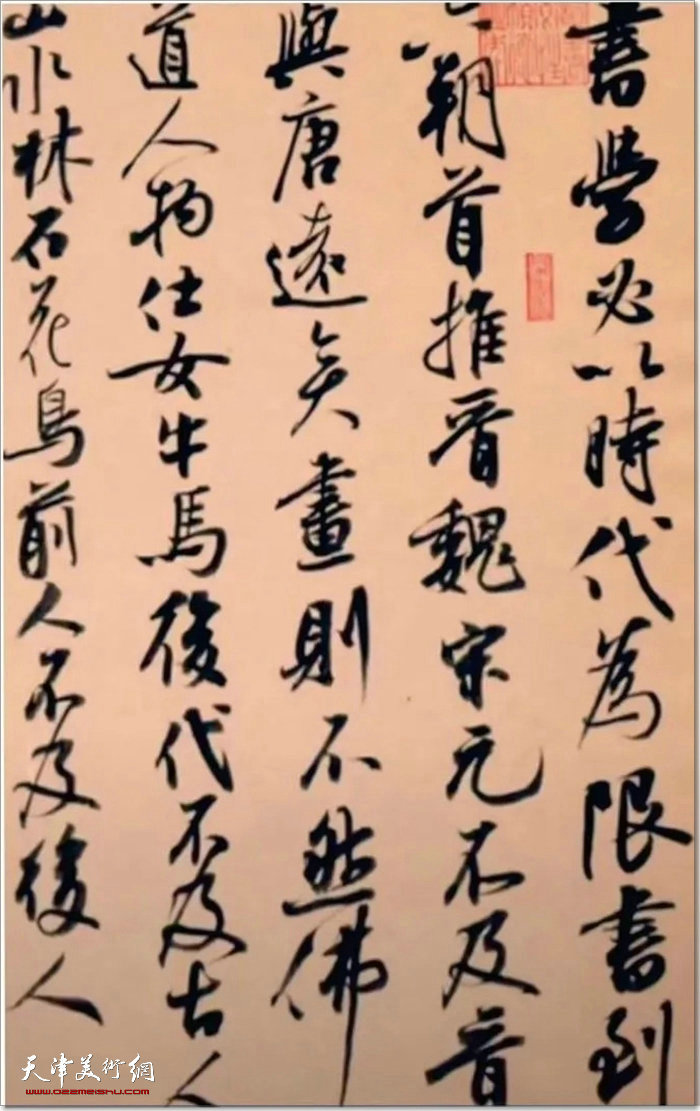 書學必以時代為限書到
六朝首推晉魏宋元不及晉
與唐遠矣畫則不然佛
道人物仕女牛馬後代不及古人
山水林石花鳥前人不及後人
天津美術網
www.022meishu.com